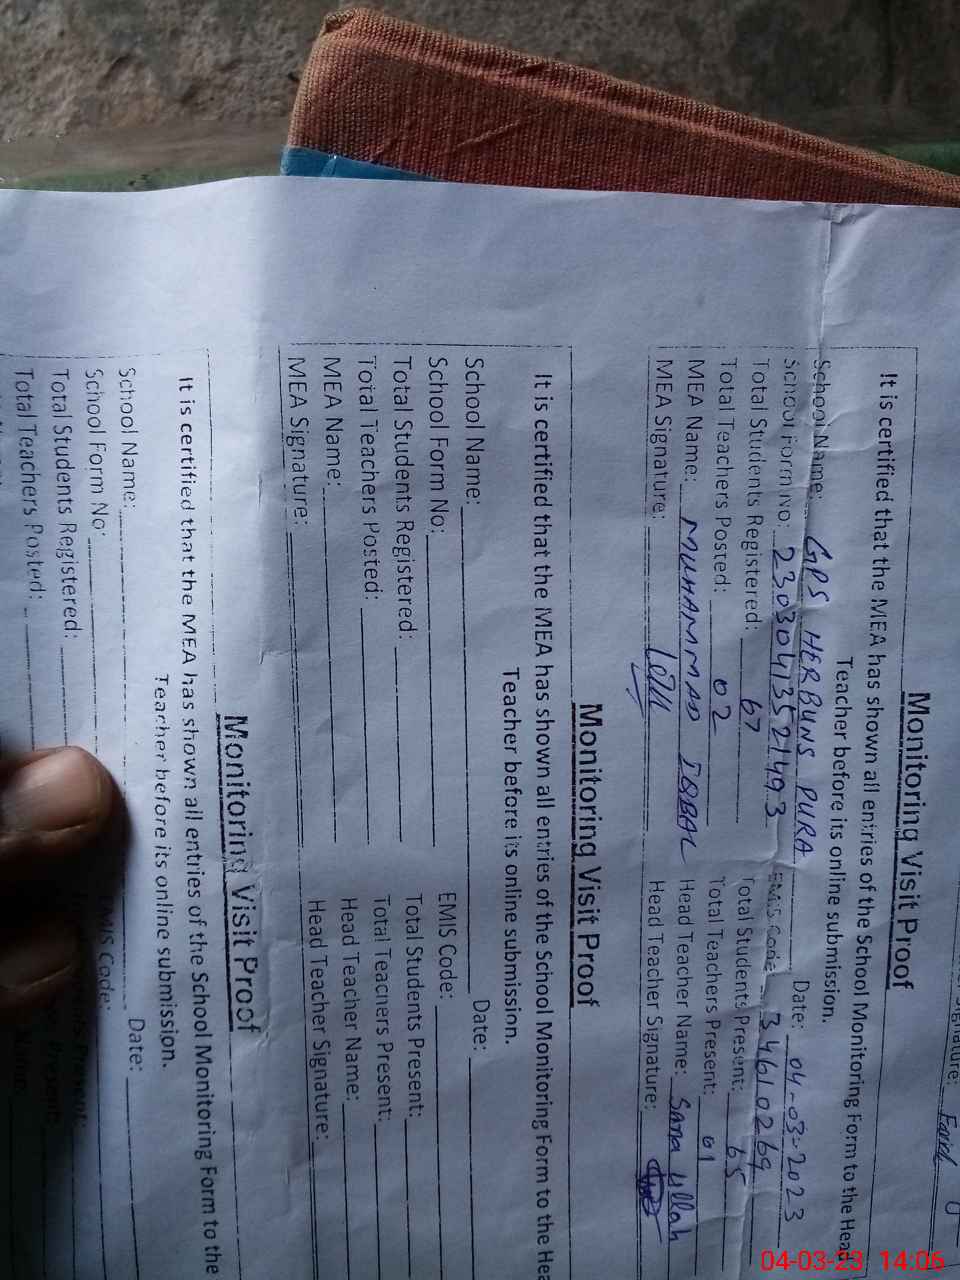 Signature: Farid U
Monitoring Visit Proof
It is certified that the MEA has shown all entries of the School Monitoring Form to the Head
Teacher before its online submission.
School Name: GPS HERBUNS PURA Date: 04-03-2023
School Form No: 230304135214493 EMIS Code: 34610269
Total Students Registered: 67 Total Students Present: 65
Total Teachers Posted: 02 Total Teachers Present: 01
MEA Name: MUHAMMAD IQBAL Head Teacher Name: Sana Ullah
MEA Signature: Head Teacher Signature:
Monitoring Visit Proof
It is certified that the MEA has shown all entries of the School Monitoring Form to the Hea
Teacher before its online submission.
School Name: Date:
School Form No: EMIS Code:
Total Students Registered: Total Students Present:
Total Teachers Posted: Total Teachers Present:
MEA Name: Head Teacher Name:
MEA Signature: Head Teacher Signature:
Monitoring Visit Proof
It is certified that the MEA has shown all entries of the School Monitoring Form to the
Teacher before its online submission.
School Name: Date:
School Form No: EMIS Code:
Total Students Registered: Present:
Total Teachers Posted:
04-03-23 14:06